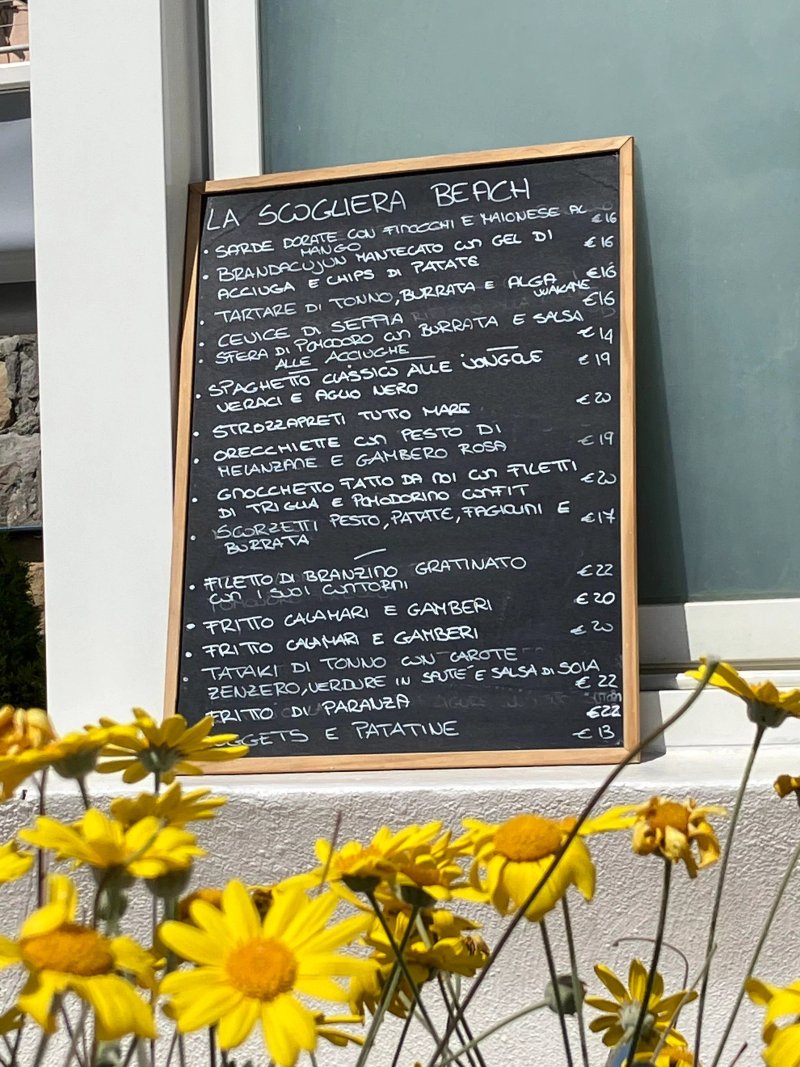 LA SCOGLIERA BEACH
• SARDE DORATE CON FINOCCHI E MAIONESE AL €16
MANGO
• BRANDACUJUN MANTECATO CON GEL DI €16
ACCIUGA E CHIPS DI PATATE
• TARTARE DI TONNO, BURRATA E ALGA €16
WAKAME
• CEVICE DI SEPPIA €16
• SFERA DI POMODORO CON BURRATA E SALSA €14
ALLE ACCIUGHE
• SPAGHETTO CLASSICO ALLE VONGOLE €19
VERACI E AGLIO NERO
• STROZZAPRETI TUTTO MARE €20
• ORECCHIETTE CON PESTO DI €19
MELANZANE E GAMBERO ROSA
• GNOCCHETTO FATTO DA NOI CON FILETTI €20
DI TRIGLIA E POMODORINO CONFIT
• SCORZETTI PESTO, PATATE, FAGIOLINI E €17
BURRATA
• FILETTO DI BRANZINO GRATINATO €22
CON I SUOI CONTORNI
• FRITTO CALAMARI E GAMBERI €20
• FRITTO CALAMARI E GAMBERI €20
• TATAKI DI TONNO CON CAROTE
ZENZERO, VERDURE IN SAUTÉ E SALSA DI SOIA €22
FRITTO DI PARANZA €22
E PATATINE €13